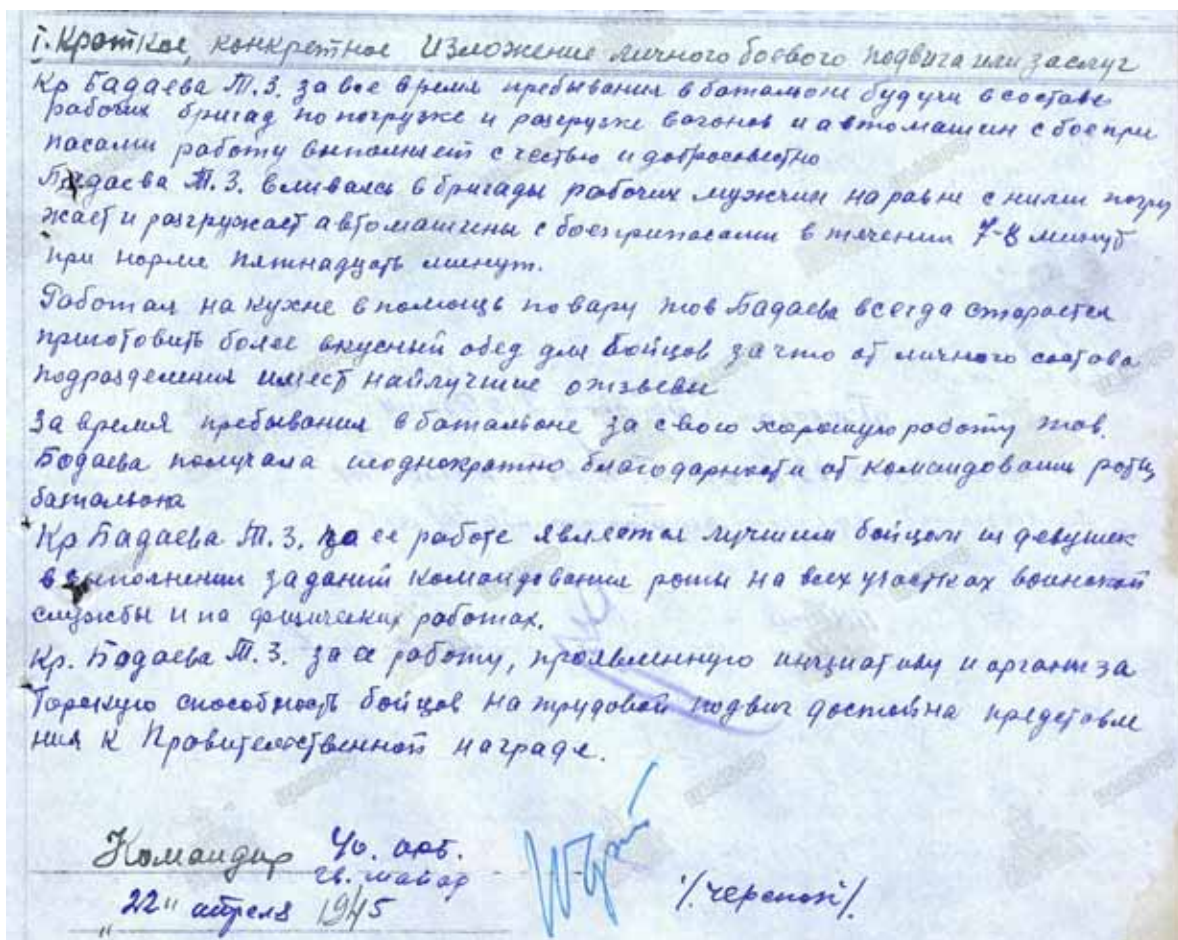 I. Краткое, конкретное изложение личного боевого подвига или заслуг
Кр Бадаева Т.З. за все время пребывания в батальоне будучи в составе
рабочих бригад по погрузке и разгрузке вагонов и автомашин с боепри
пасами работу выполняет с честью и добросовестно
Бадаева Т.З. вливаясь в бригады рабочих мужчин на равне с ними погру
жает и разгружает автомашины с боеприпасами в течении 7-8 минут
при норме пятнадцать минут.
Работая на кухне в помощь повару тов Бадаева всегда старается
приготовить более вкусный обед для бойцов за что от личного состава
подразделения имеет найлучшие отзывы
За время пребывания в батальоне за свою хорошую работу тов.
Бодаева получала неоднократно благодарности от командования роты,
батальона
Кр Бадаева Т.З. по ее работе является лучшим бойцом из девушек
в выполнении заданий командования роты на всех участках воинской
службы и на физических работах.
Кр. Бадаева Т.З. за ее работу, проявленную инициативу и организа
торскую способность бойцов на трудовой подвиг достойна представле
ния к Правительственной награде.
Командир 40. орб.
гв. майор
/Черепой/.
"22" апреля 1945